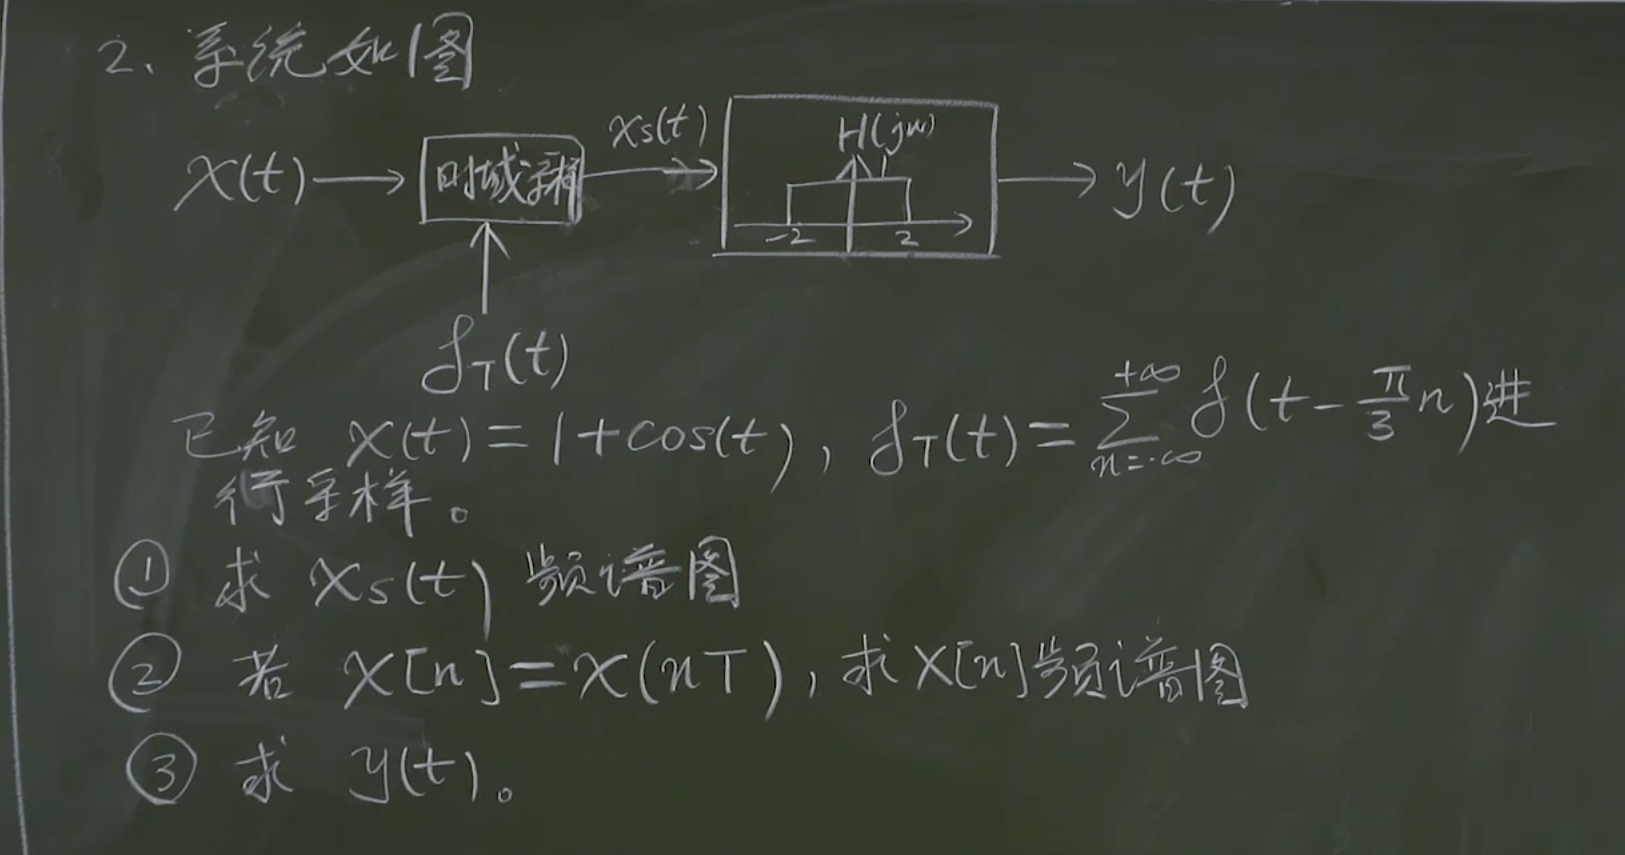 2、系统如图
x(t) → 时域采样 xs(t) → H(jw) 1 -2 2 → y(t)
δT(t)
已知 x(t)=1+cos(t), δT(t)=∑_{n=-∞}^{+∞} δ(t-π/3 n)进
行采样。
① 求 xs(t) 频谱图
② 若 x[n]=x(nT), 求x[n]频谱图
③ 求 y(t)。